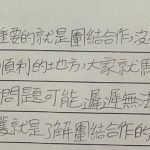 重要的就是團結合作,沒
順利的地方,大家就馬
問題可能遲遲無法
就是了解團結合作的